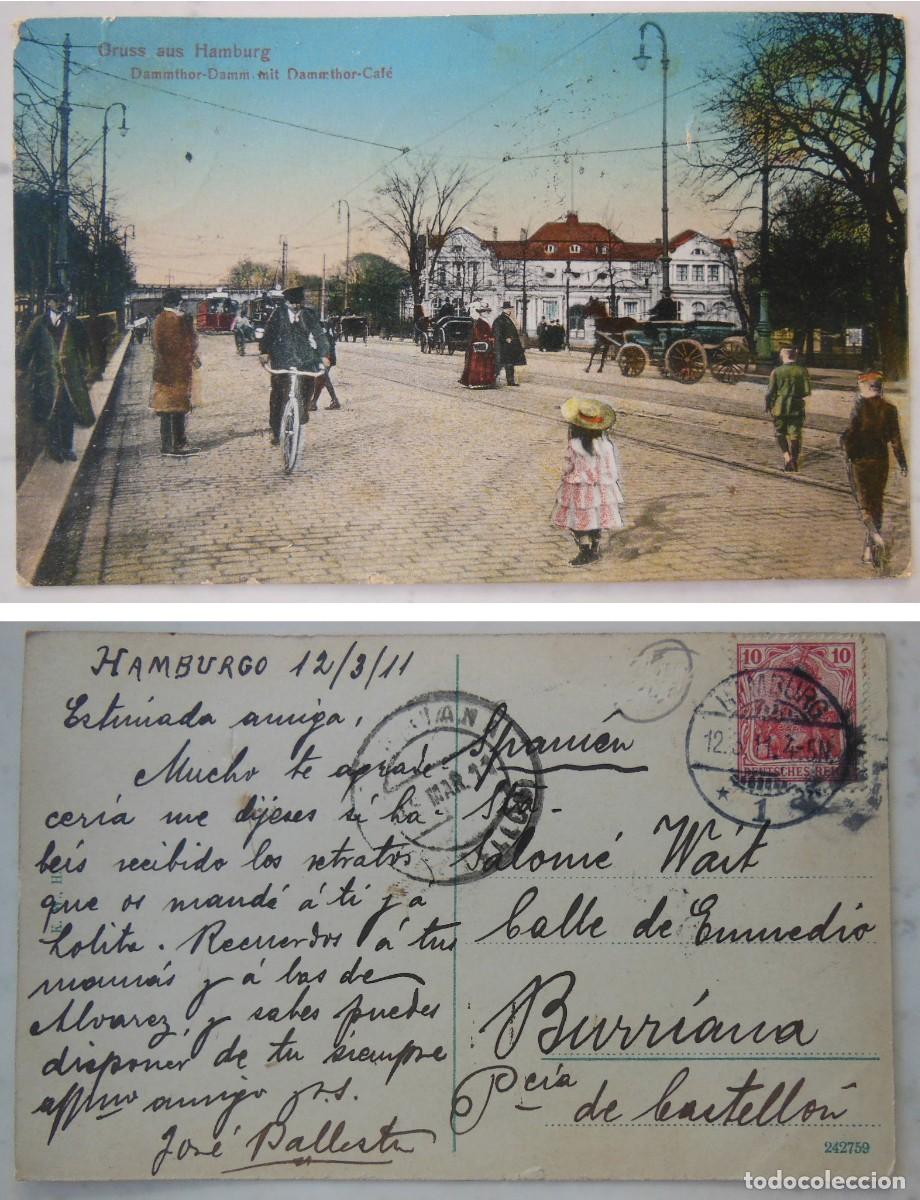 Gruss aus Hamburg
Dammthor-Damm mit Dammthor-Café
HAMBURGO 12/3/11
Estimada amiga,
Mucho te agrade-
cería me dijeses si ha-
beis recibido los retratos
que os mandé á ti y á
Lolita. Recuerdos á tus
mamás y á las de
Alvarez, y sabes puedes
disponer de tu siempre
affmo amigo y s.s.
José Ballester
Spanien
Sta-
Salomé Wait
Calle de Enmedio
Burriana
Pcia
de Castellón
10 10
DEUTSCHES REICH
HAMBURG
12.3.11. 4-5N.
* 1
MAR.11
242759
todocoleccion